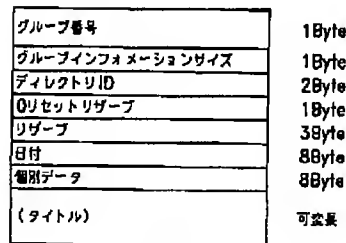 グループ番号 1Byte
グループインフォメーションサイズ 1Byte
ディレクトリID 2Byte
0リセットリザーブ 1Byte
リザーブ 3Byte
日付 8Byte
個別データ 8Byte
(タイトル) 可変長